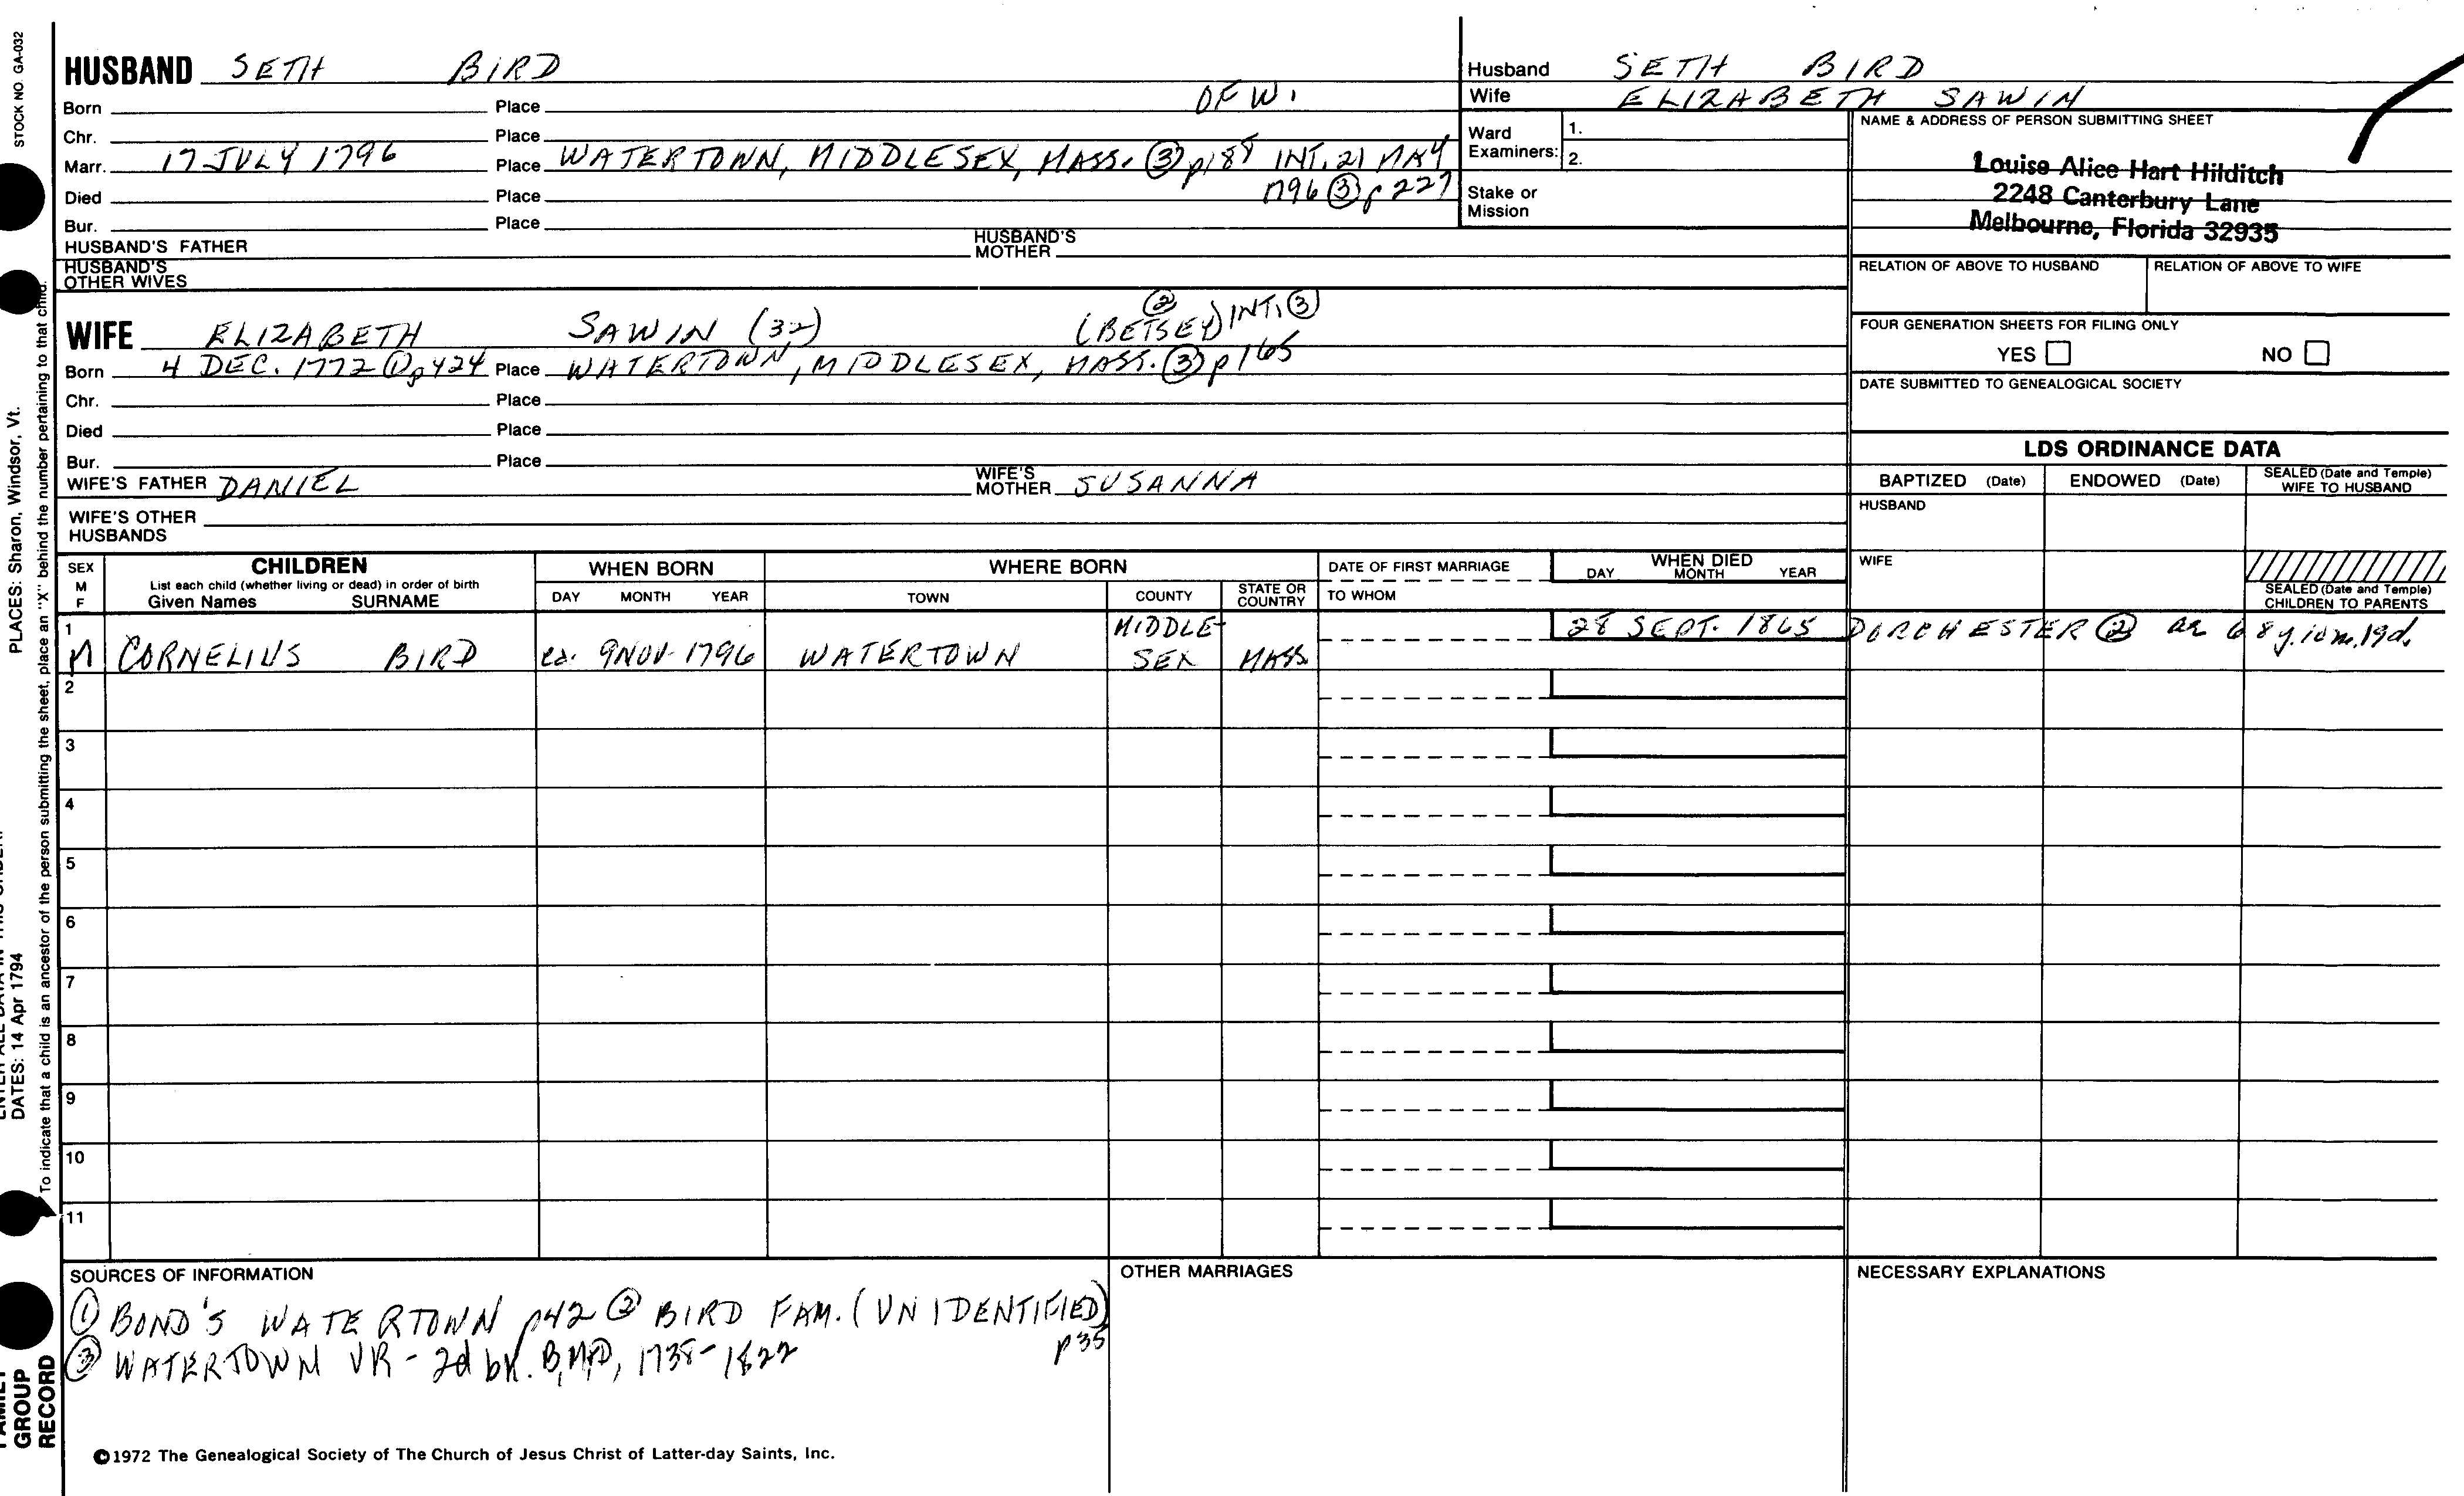 STOCK NO. GA-032
HUSBAND SETH BIRD
Born Place OF W.
Chr. Place
Marr. 17 JULY 1796 Place WATERTOWN, MIDDLESEX, MASS. ③ p188 INT. 21 MAY
1796 ③ p 227
Died Place
Bur. Place
HUSBAND'S FATHER HUSBAND'S MOTHER
HUSBAND'S OTHER WIVES
WIFE ELIZABETH SAWIN (32) (BETSEY) ② INT. ③
Born 4 DEC. 1772 ① p424 Place WATERTOWN, MIDDLESEX, MASS. ③ p165
Chr. Place
Died Place
Bur. Place
WIFE'S FATHER DANIEL WIFE'S MOTHER SUSANNA
WIFE'S OTHER HUSBANDS
Husband SETH BIRD
Wife ELIZABETH SAWIN
Ward Examiners: 1.
2.
Stake or Mission
NAME & ADDRESS OF PERSON SUBMITTING SHEET
Louise Alice Hart Hilditch
2248 Canterbury Lane
Melbourne, Florida 32935
RELATION OF ABOVE TO HUSBAND RELATION OF ABOVE TO WIFE
FOUR GENERATION SHEETS FOR FILING ONLY
YES NO
DATE SUBMITTED TO GENEALOGICAL SOCIETY
LDS ORDINANCE DATA
BAPTIZED (Date) ENDOWED (Date) SEALED (Date and Temple) WIFE TO HUSBAND
HUSBAND
WIFE
SEALED (Date and Temple) CHILDREN TO PARENTS
SEX M F
CHILDREN
List each child (whether living or dead) in order of birth
Given Names SURNAME
WHEN BORN
DAY MONTH YEAR
WHERE BORN
TOWN COUNTY STATE OR COUNTRY
DATE OF FIRST MARRIAGE
TO WHOM
WHEN DIED
DAY MONTH YEAR
1 M CORNELIUS BIRD ca. 9 NOV. 1796 WATERTOWN MIDDLE-SEX MASS 28 SEPT. 1865 DORCHESTER ② ae 68 y. 10 m. 19 d.
2
3
4
5
6
7
8
9
10
11
SOURCES OF INFORMATION
① BOND'S WATERTOWN p42 ② BIRD FAM. (UNIDENTIFIED) p35
③ WATERTOWN VR - 2d bk. B,M,D, 1738-1822
OTHER MARRIAGES
NECESSARY EXPLANATIONS
©1972 The Genealogical Society of The Church of Jesus Christ of Latter-day Saints, Inc.
PLACES: Sharon, Windsor, Vt.
DATES: 14 Apr 1794
To indicate that a child is an ancestor of the person submitting the sheet, place an "X" behind the number pertaining to that child.
GROUP
RECORD